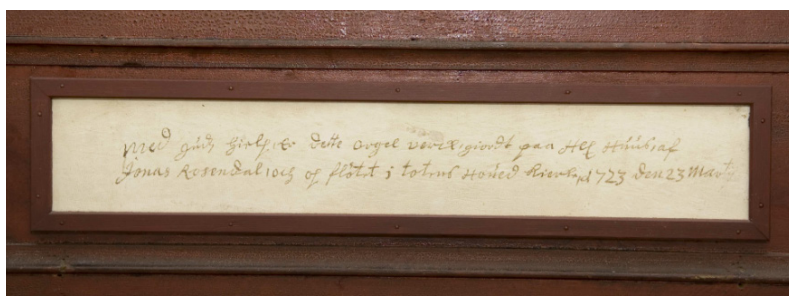 med gudz hielp er dette orgel verck giordt paa Alf Huus af
Jonas Rosendal och op fløtt i totens Hoúed kierke 1723 den 23 Marty